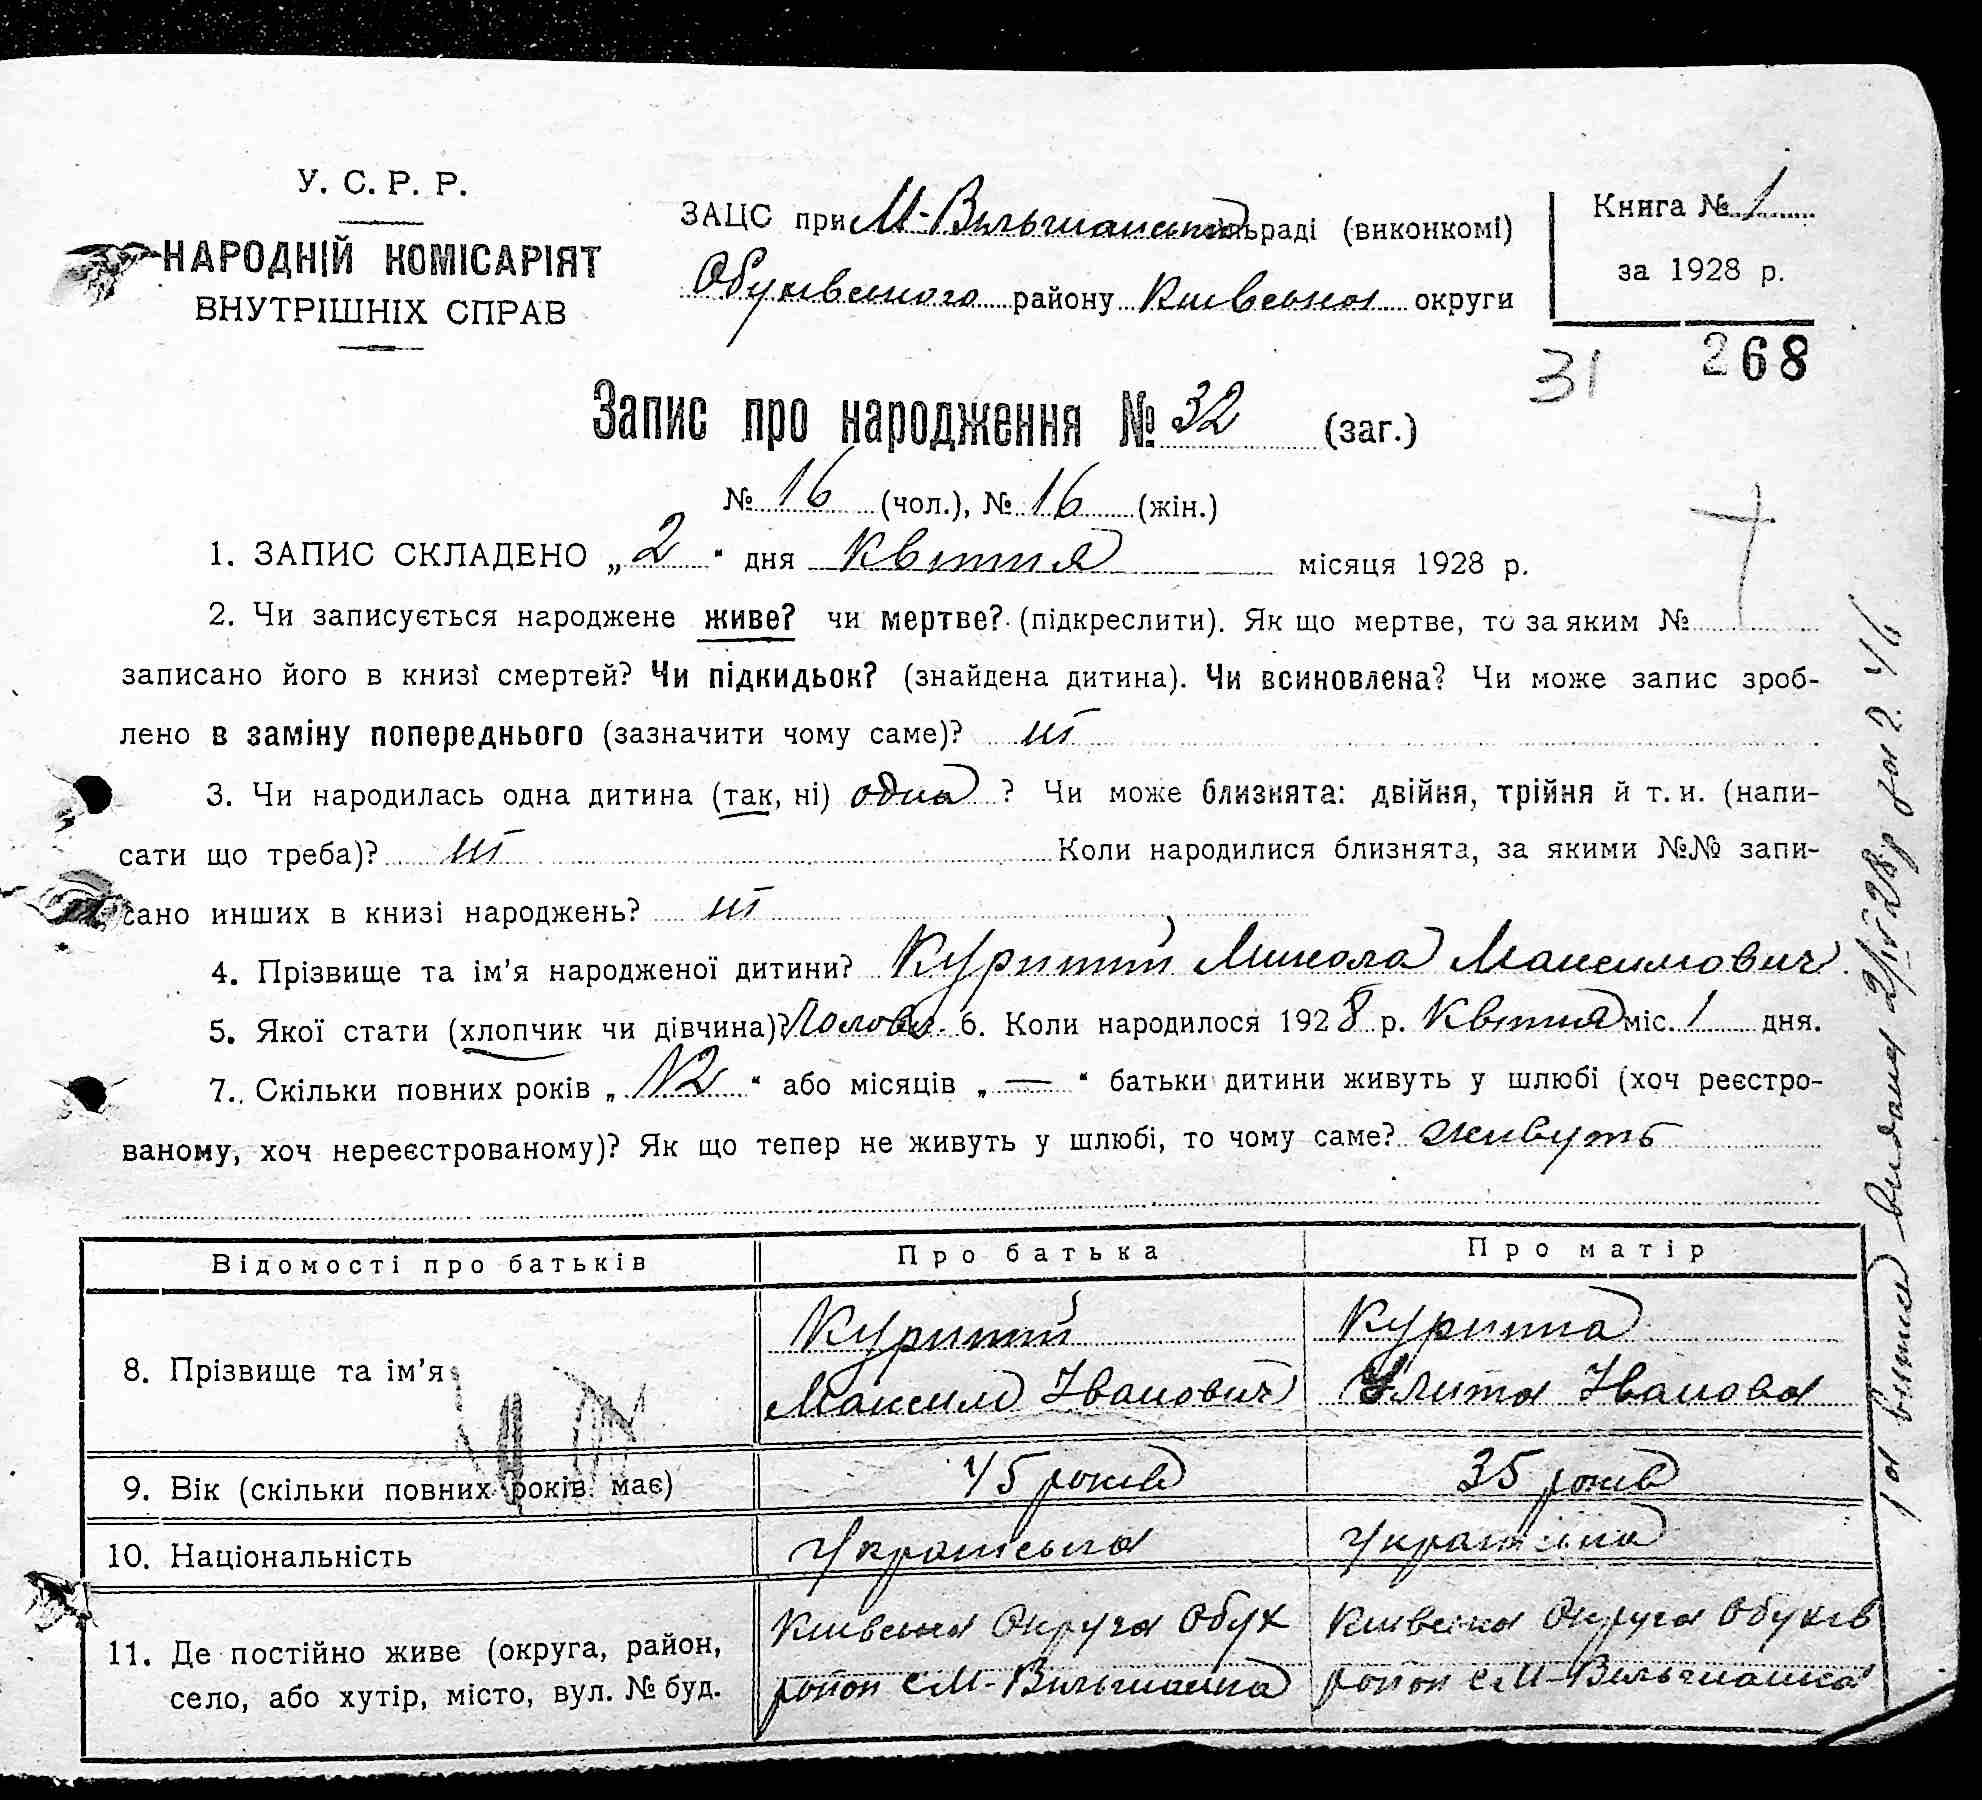 У. С. Р. Р.
НАРОДНІЙ КОМІСАРІЯТ
ВНУТРІШНІХ СПРАВ
ЗАЦС при М-Вільшанській раді (виконкомі)
Обухівського району Київської округи
Книга № 1
за 1928 р.
31 268
Запис про народження № 32 (заг.)
№ 16 (чол.), № 16 (жін.)
1. ЗАПИС СКЛАДЕНО „ 2 " дня Квітня місяця 1928 р.
2. Чи записується народжене живе? чи мертве? (підкреслити). Як що мертве, то за яким №
записано його в книзі смертей? Чи підкидьок? (знайдена дитина). Чи всиновлена? Чи може запис зроб-
лено в заміну попереднього (зазначити чому саме)? ні
3. Чи народилась одна дитина (так, ні) одна ? Чи може близнята: двійня, трійня й т. и. (напи-
сати що треба)? ні Коли народилися близнята, за якими №№ запи-
сано инших в книзі народжень? ні
4. Прізвище та ім'я народженої дитини? Куритий Микола Максимович
5. Якої стати (хлопчик чи дівчина)? 6. Коли народилося 1928 р. Квітня міс. 1 дня.
7. Скільки повних років „ 12 " або місяців „ — " батьки дитини живуть у шлюбі (хоч реєстро-
ваному, хоч нереєстрованому)? Як що тепер не живуть у шлюбі, то чому саме? живуть
Відомості про батьків Про батька Про матір
8. Прізвище та ім'я
Куритий
Максим Іванович
Куритта
Улита Іванова
9. Вік (скільки повних років має) 45 років 35 років
10. Національність Українська Українка
11. Де постійно живе (округа, район,
село, або хутір, місто, вул. № буд.
Київська Округа Обух
район с М-Вільшанка
Київска Округа Обухів
район с М-Вільшанка
видана 2/IV 28 р за № 46